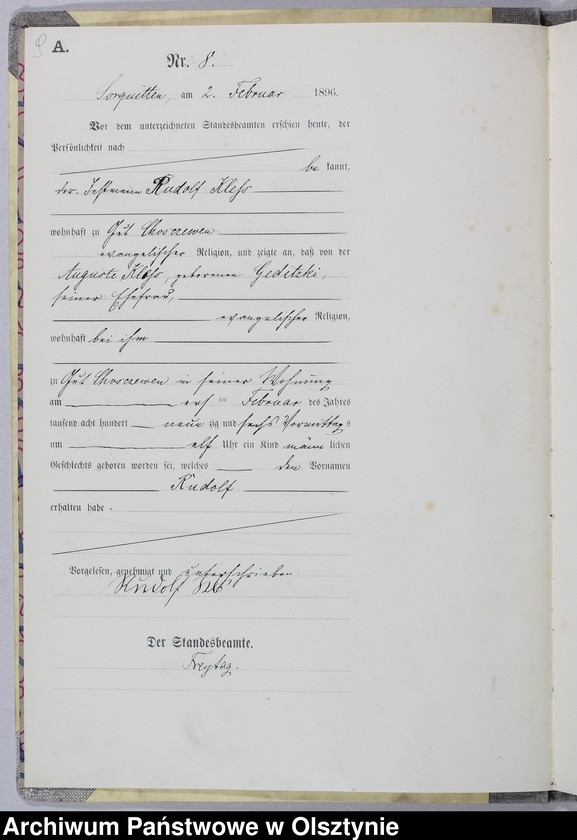 A.
Nr. 8.
Sorquitten, am 2. Februar 1896.
Vor dem unterzeichneten Standesbeamten erschien heute, der
Persönlichkeit nach
be kannt,
der Instmann Rudolf Kless
wohnhaft zu Gut Choszewen
evangelischer Religion, und zeigte an, daß von der
Auguste Kless, geborenen Geditzki,
seiner Ehefrau,
evangelischer Religion,
wohnhaft bei ihm
zu Gut Choszewen in seiner Wohnung
am ersten Februar des Jahres
tausend acht hundert neun zig und sechs Vormittags
um elf Uhr ein Kind männ lichen
Geschlechts geboren worden sei, welches den Vornamen
Rudolf
erhalten habe.
Vorgelesen, genehmigt und unterschrieben.
Rudolf
Der Standesbeamte.
Freytag.
Archiwum Państwowe w Olsztynie